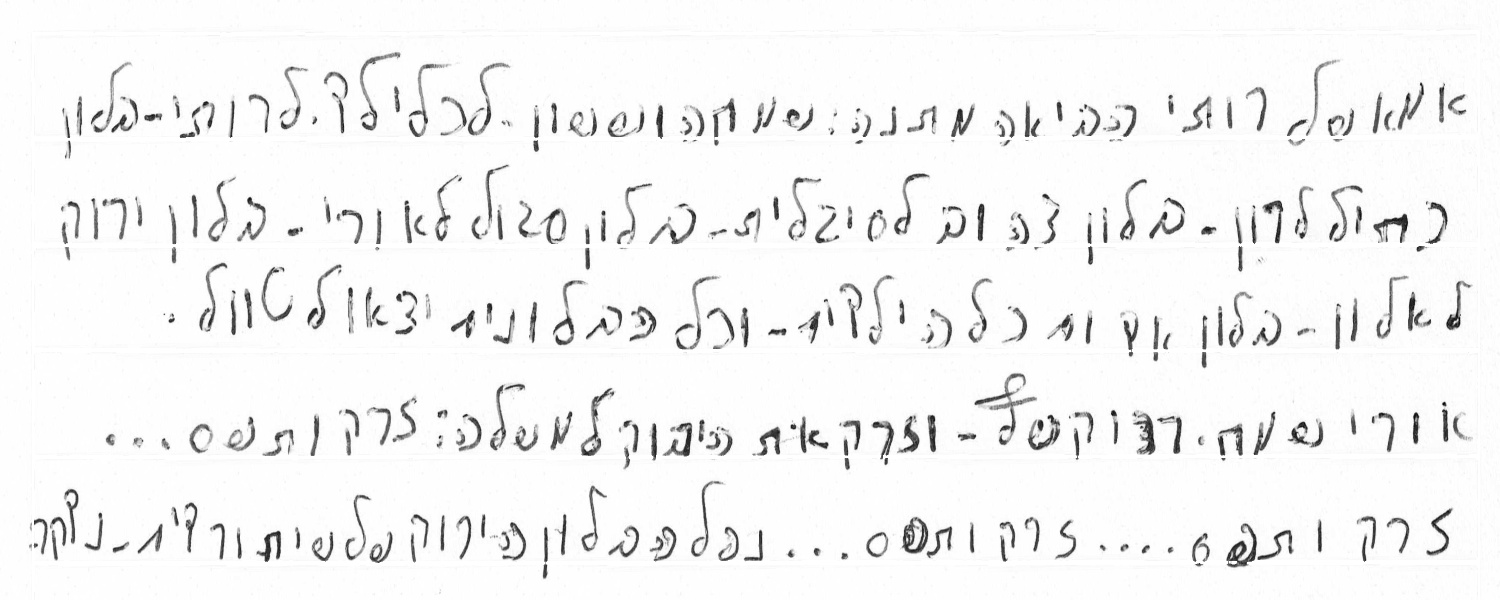 אמא של רותי הביאה מתנה: שמחה וששון - לכל ילד. לרותי - בלון
כחול לרון - בלון צהוב לסיגלית - בלון סגול לאורי - בלון ירוק
לאלון - בלון אדום כל הילדים - וכל הבלונים יצאו לטוול.
אורי שמח. רץ וקפץ - וזרק את הירוק למעלה: זרק ותפס...
זרק ותפס.... זרק ותפס... נפל הבלון הירוק על שיח ורדים - נדקר